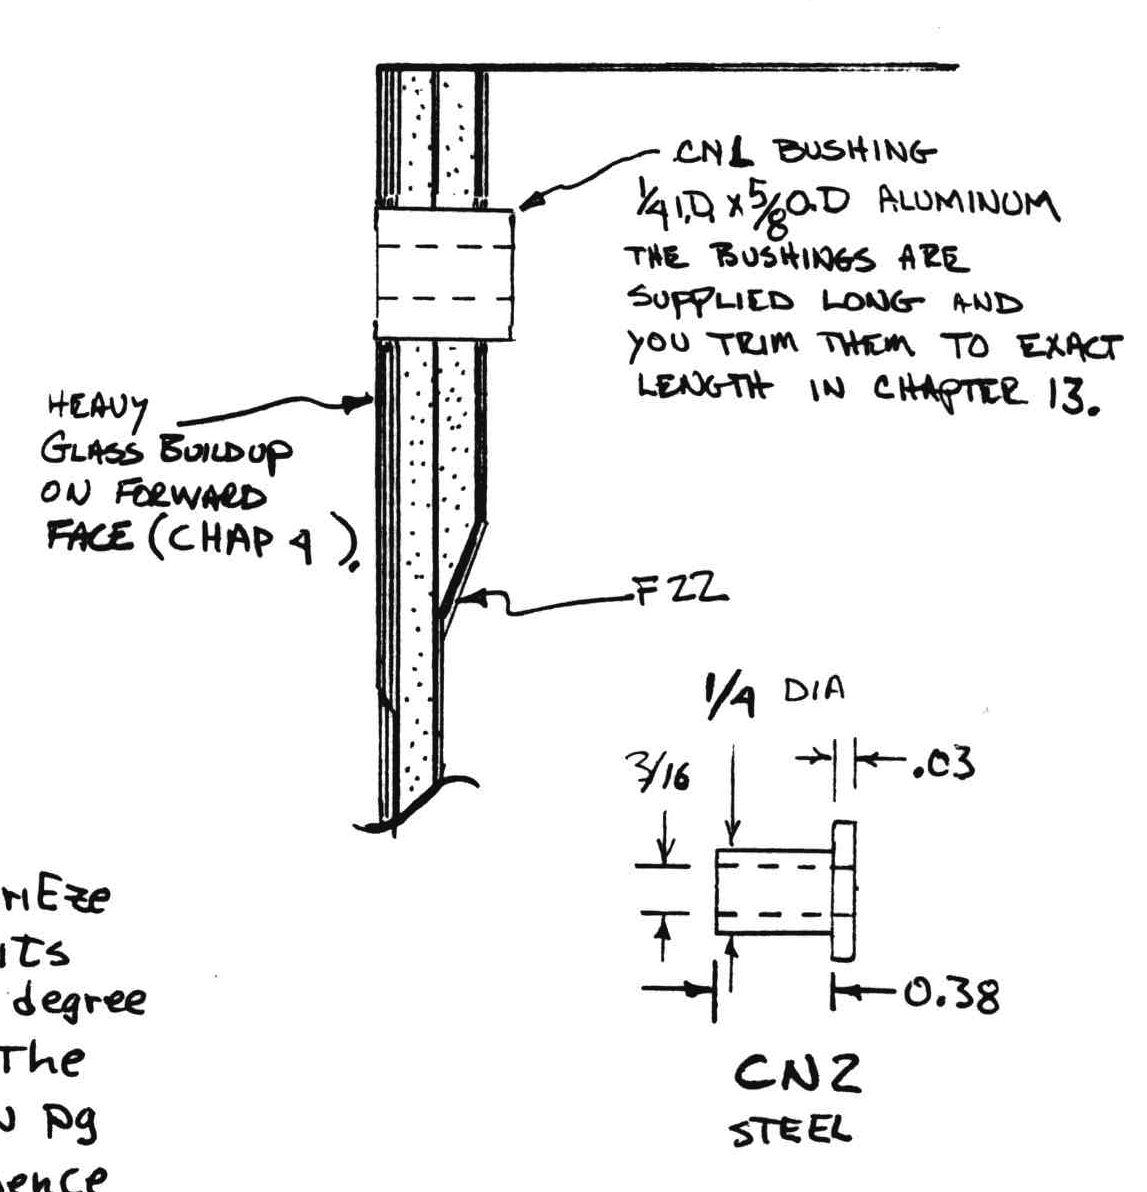 CN1 BUSHING
1/4 I.D. x 5/8 O.D ALUMINUM
THE BUSHINGS ARE
SUPPLIED LONG AND
YOU TRIM THEM TO EXACT
LENGTH IN CHAPTER 13.
HEAVY
GLASS BUILDUP
ON FORWARD
FACE (CHAP 4).
F22
1/4 DIA
3/16
.03
0.38
CN2
STEEL
degree
The
pg